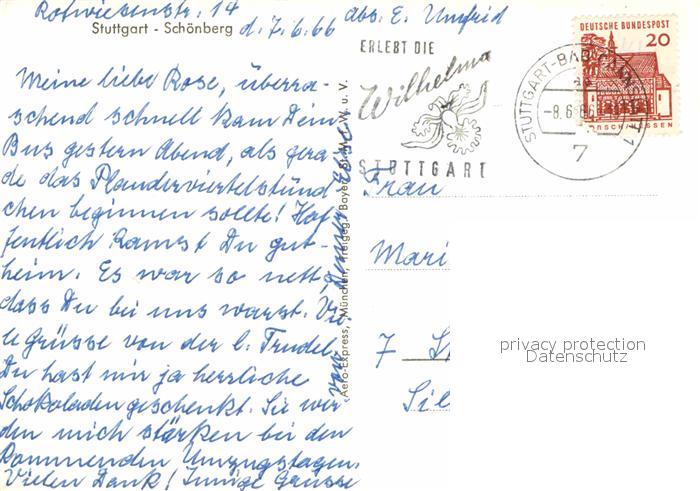 Rotwiesenstr. 14
Stuttgart - Schönberg
d. 7.6.66
abs. E. Umfrid
Meine liebe Rose, überra-
schend schnell kam Dein
Bus gestern Abend, als gera-
de das Plauderviertelstünd
chen beginnen sollte! Hof-
fentlich kamst Du gut-
heim. Es war so nett,
dass Du bei uns warst. Vie-
le Grüsse von der l. Trudel.
Du hast mir ja herrliche
Schokoladen geschenkt. Sie wer
den mich stärken bei den
kommenden Umzugstagen.
Vielen Dank! Innige Grüsse
von Deiner Else
Aero-Express, München, Freigeg. Bayer. St. M. f. W. u. V.
ERLEBT DIE
Wilhelma
STUTTGART
STUTTGART-BAD CANNSTATT 1
-8.6.66
7
DEUTSCHE BUNDESPOST
20
LORSCH/HESSEN
Frau
Mari
7 St
Sil
privacy protection
Datenschutz